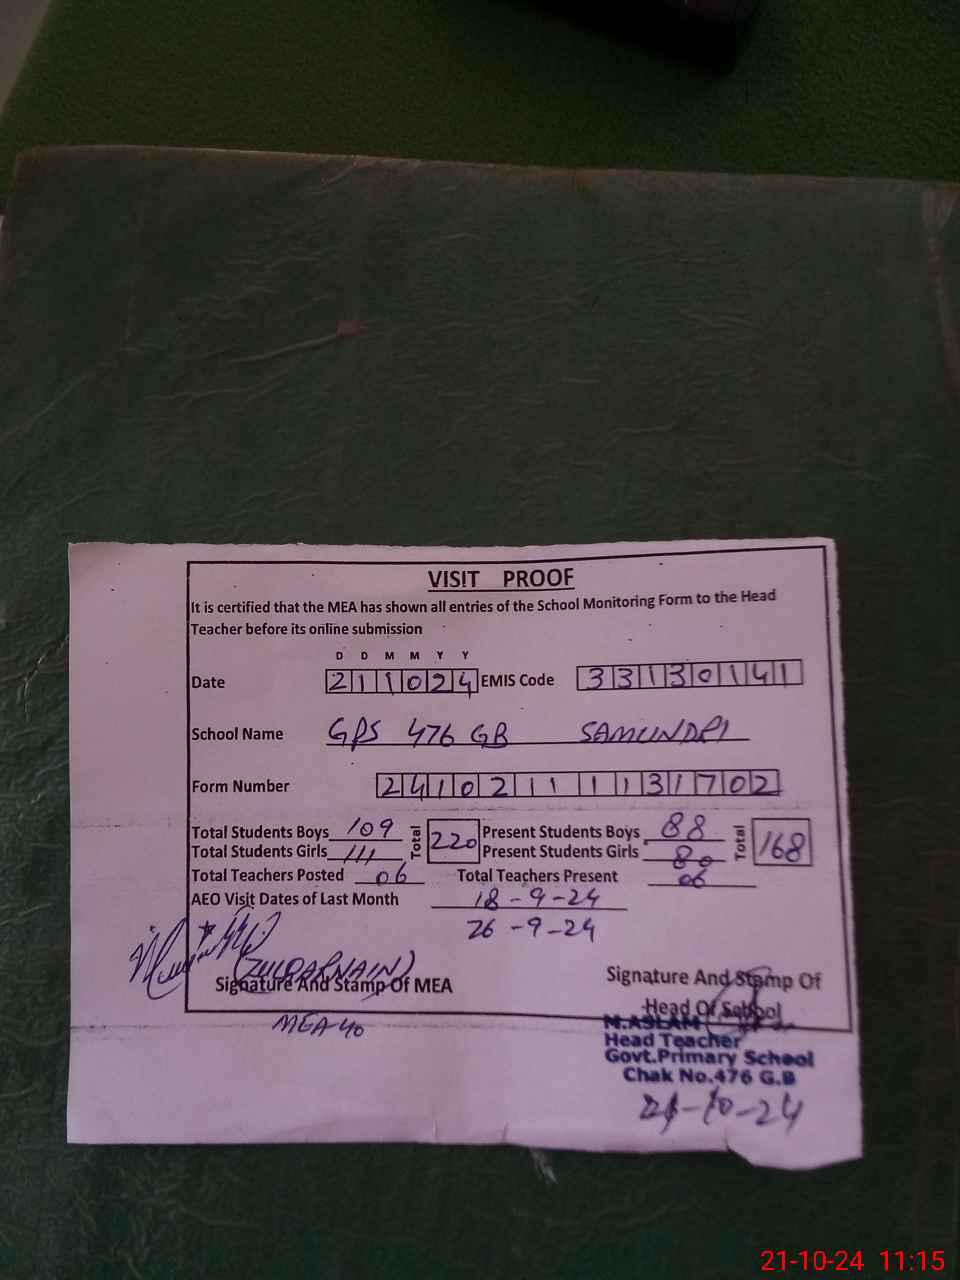 VISIT PROOF
It is certified that the MEA has shown all entries of the School Monitoring Form to the Head
Teacher before its online submission
D D M M Y Y
Date 211024 EMIS Code 33130141
School Name GPS 476 GB SAMUNDRI
Form Number 24102111131702
Total Students Boys 109 Total 220 Present Students Boys 88 Total 168
Total Students Girls 111 Present Students Girls 80
Total Teachers Posted 06 Total Teachers Present 06
AEO Visit Dates of Last Month 18-9-24
26-9-24
(ZULQARNAIN)
Signature And Stamp Of MEA Signature And Stamp Of
Head Of School
MEA 40
M.ASLAM
Head Teacher
Govt.Primary School
Chak No.476 G.B
21-10-24
21-10-24 11:15